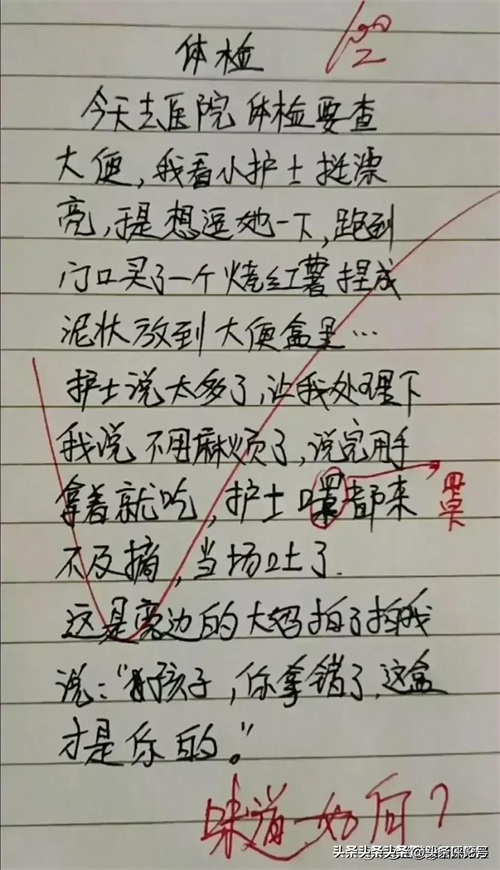 体检
今天去医院体检要查
大便，我看小护士挺漂
亮，于是想逗她一下，跑到
门口买了一个烧红薯捏成
泥状放到大便盒里…
护士说太多了，让我处理下
我说不用麻烦了，说完用手
拿着就吃，护士嘿都来
罩
不及摘，当场吐了.
这是旁边的大妈拍了拍我
说："好孩子，你拿错了，这盒
才是你的。"
味道如何？
头条头条头条@